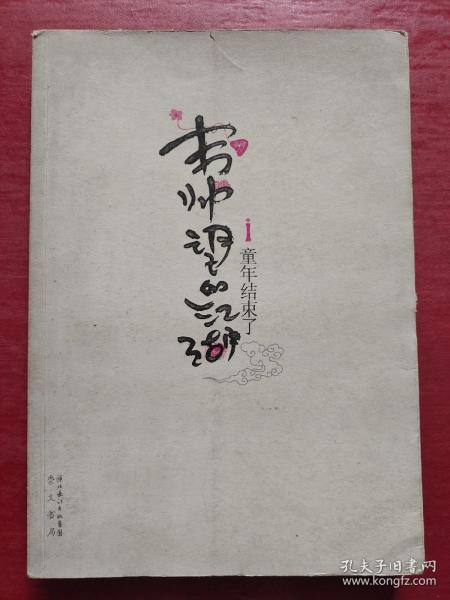 韦帅望的江湖
i
童年结束了
湖北长江出版集团
崇文书局
孔夫子旧书网
www.kongfz.com